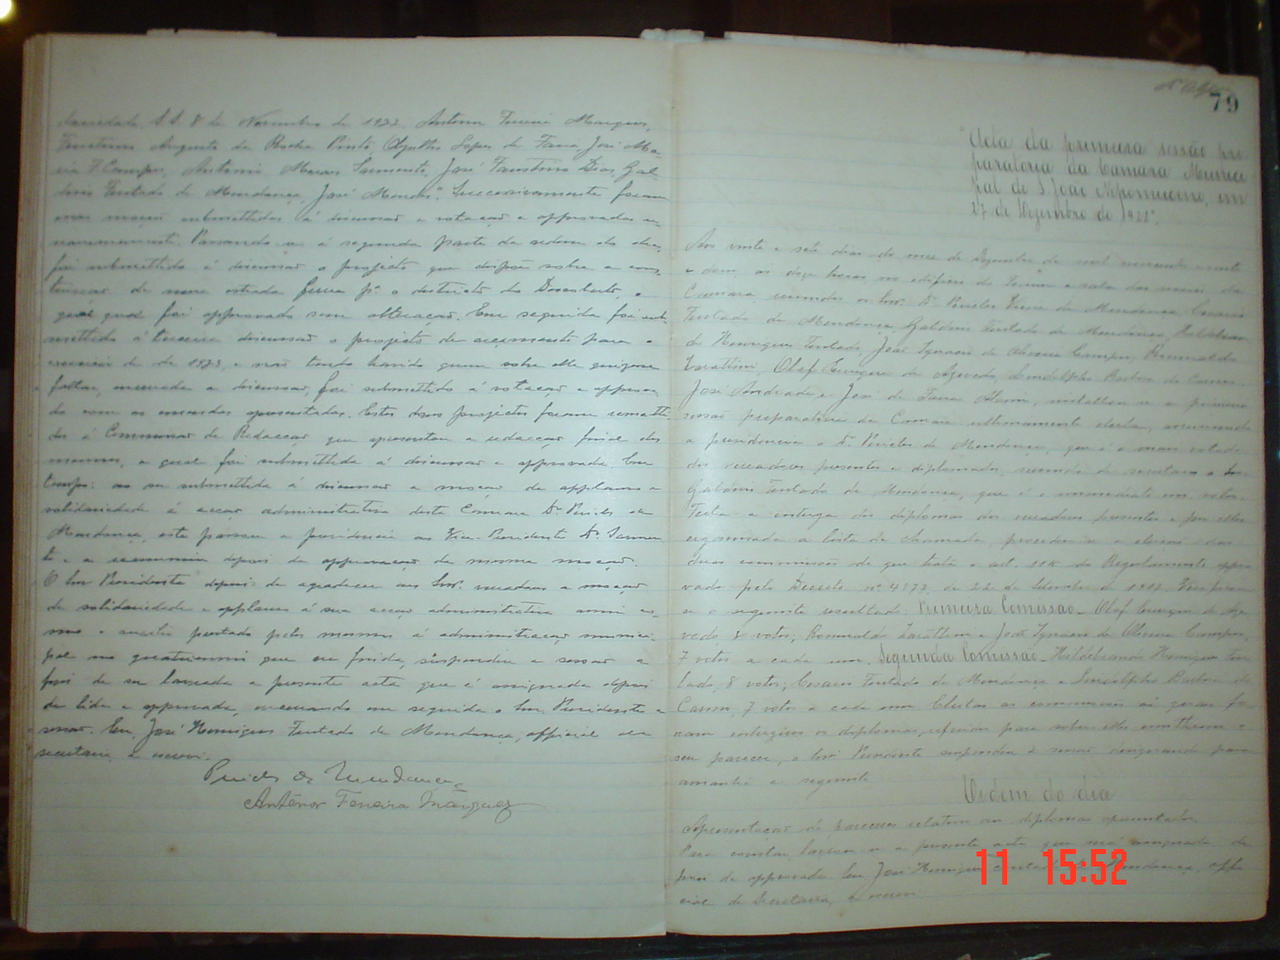 S. S. 8 de Novembro de 1922. Antenor Ferreira Marques,
Augusto da Rocha Pinto, Olyntho Lopes de Faria, José Ma-
ria F. Campos, Antonio Moraes Sarmento, José Faustino Dias, Gal-
dino Furtado de Mendonça, José Mendes". Successivamente foram
submettidas á discussão e votação e approvadas u-
nanimemente. Passando-se á segunda parte da ordem do dia,
foi submettido á discussão o projecto que dispõe sobre a cons-
trucção de uma estrada para o districto do Descoberto, o
qual foi approvado sem alteração. Em seguida foi sub-
mettido á terceira discussão o projecto de orçamento para o
exercicio de 1923, e não tendo havido quem sobre elle quizesse
fallar, encerrada a discussão, foi submettido á votação e approva-
do com as emendas apresentadas. Estes dous projectos foram remetti-
dos á Commissão de Redacção que apresentou a redacção final dos
mesmos, a qual foi submettida á discussão e approvada. Em
tempo: ao ser submettida á discussão a moção de applausos e
solidariedade á acção administrativa desta Camara Dr. Pericles de
Mendonça, este passou a presidencia ao Vice-Presidente Dr. Sarmen-
to e a reassumiu depois da approvação da mesma moção.
O Snr. Presidente depois de agradecer aos Snrs. vereadores a moção
de solidariedade e applausos á sua acção administrativa
e auxilio prestado pelos mesmos á administração munici-
pal no quatriennio que ora finda, suspendeu a sessão a
fim de ser lavrada a presente acta que é assignada depois
de lida e approvada, encerrando em seguida o Snr. Presidente a
sessão. Eu, José Henriques Furtado de Mendonça, official da
secretaria, a escrevi.
Pericles de Mendonça
Antenor Ferreira Marques
79
"Acta da primeira sessão pre-
paratoria da Camara Munici-
pal de S. João Nepomuceno, em
27 de Dezembro de 1922".
Aos vinte e sete dias do mez de Dezembro de mil novecentos e vinte
e dous, ás doze horas no edificio do Forum e sala das sessões da
Camara reunidos os Snrs. Dr. Pericles Vieira de Mendonça, Cesario
Furtado de Mendonça, Galdino Furtado de Mendonça, Hildebran-
do Henriques Furtado, José Ignacio de Oliveira Campos, Romualdo
Zarattini, Olaf Cerqueira de Azevedo, Lindolpho Barbosa de Castro,
José Andrade e José de Faria Alvim, installou-se a primeira
sessão preparatoria da Camara ultimamente eleita, assumindo
a presidencia o Dr. Pericles de Mendonça, que é o mais votado
dos vereadores presentes e diplomados, servindo de secretario o Snr.
Galdino Furtado de Mendonça, que é o immediato em votos.
Feita a entrega dos diplomas dos vereadores presentes e por elles
organisada a lista de chamada, procedeu-se a eleição das
duas commissões de que trata o art. do Regulamento appro-
vado pelo Decreto nº 4177, de 22 de Setembro de
se o seguinte resultado: Primeira Comissão - Olaf Cerqueira de Aze-
vedo 8 votos, Romualdo Zarattini e José Ignacio de Oliveira Campos,
7 votos a cada um. Segunda Comissão - Hildebrando Henriques Fur-
tado, 8 votos; Cesario Furtado de Mendonça e Lindolpho Barbosa de
Castro 7 votos a cada um. Eleitas as commissões ás quaes fo-
ram entregues os diplomas, afim de sobre elles emittirem o
seu parecer, o Snr. Presidente suspendeu a sessão designando para
amanhã a seguinte
Ordem do dia
Apresentação de pareceres relativos aos diplomas apresentados.
Para constar lavrou-se a presente acta que será assignada de-
pois de approvada. Eu José Henriques Furtado de Mendonça, offi-
cial da Secretaria, a escrevi.
11 15:52